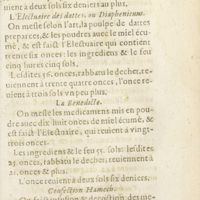 uient à deux sols six deniers au plus.
L'Electuaire des dattes, ou Diaphenicum.
On mesle selon l'art, la poulpe de dattes
preparees, & les poudres auec le miel écu-
mé, & est faict l'Electuaire qui contient
trente six onces: les ingrediens & le feu
cinq liures cinq sols.
Lesdites 36. onces, rabbatu le dechet, re-
uiennent à trente quatre onces, l'once re-
uient à trois sols vn peu plus.
La Benedicte.
On mesle les medicamens mis en pou-
dre auec dix huit onces de miel écumé, & est
faict l'Electuaire, qui reuient à vingt-
trois onces.
Les ingrediens & le feu 55. sols: lesdites
23. onces, rabbatu le dechet, reuiennent à
21. onces & plus.
L'once reuient à deux sols six deniers.
Confection Hamech.